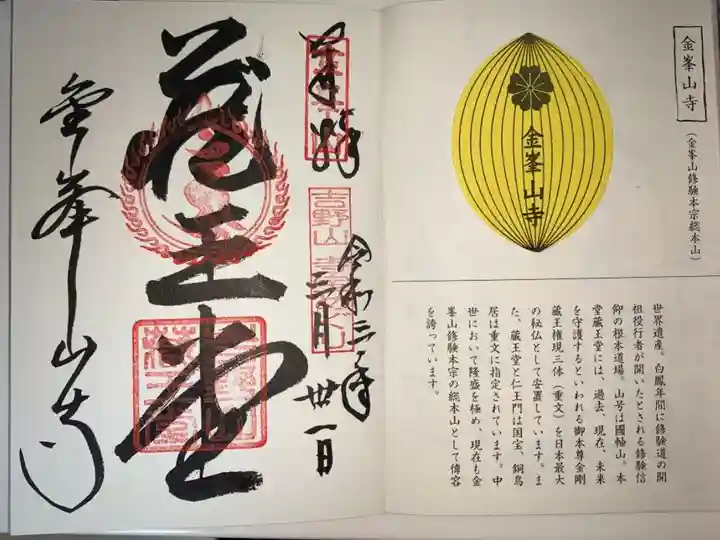 金峯山寺
（金峯山修験本宗総本山）
金峯山寺
世界遺産。白鳳年間に修験道の開
祖役行者が開いたとされる修験信
仰の根本道場。山号は国軸山。本
堂蔵王堂には、過去、現在、未来
を守護するといわれる御本尊金剛
蔵王権現三体（重文）を日本最大
の秘仏として安置しています。ま
た、蔵王堂と仁王門は国宝、銅鳥
居は重文に指定されています。中
世において隆盛を極め、現在も金
峯山修験本宗の総本山として偉容
を誇っています。
奉拝
吉野山
令和三年
三月卅一日
蔵王堂
金峯山寺